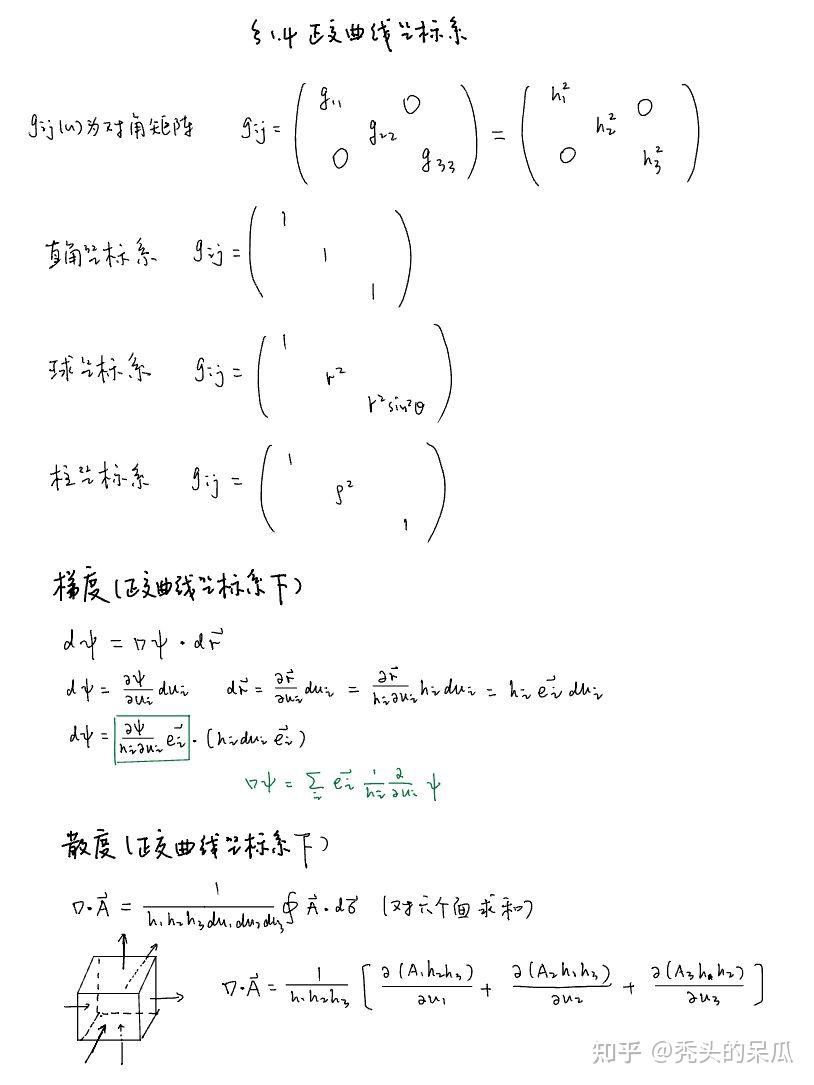 §1.4 正交曲线坐标系
gij(u)为对角矩阵 gij = ( g11 0 g22 0 g33 ) = ( h1² 0 h2² 0 h3² )
直角坐标系 gij = ( 1 1 1 )
球坐标系 gij = ( 1 r² r²sin²θ )
柱坐标系 gij = ( 1 ρ² 1 )
梯度(正交曲线坐标系下)
dψ = ∇ψ · dr⃗
dψ = ∂ψ/∂ui dui dr⃗ = ∂r⃗/∂ui dui = ∂r⃗/hi∂ui hi dui = hi e⃗i dui
dψ = ∂ψ/hi∂ui e⃗i · (hi dui e⃗i)
∇ψ = Σi e⃗i 1/hi ∂/∂ui ψ
散度(正交曲线坐标系下)
∇·A⃗ = 1/h1h2h3du1du2du3 ∮ A⃗·dσ⃗ (对六个面求和)
∇·A⃗ = 1/h1h2h3 [ ∂(A1h2h3)/∂u1 + ∂(A2h1h3)/∂u2 + ∂(A3h1h2)/∂u3 ]
知乎 @秃头的呆瓜